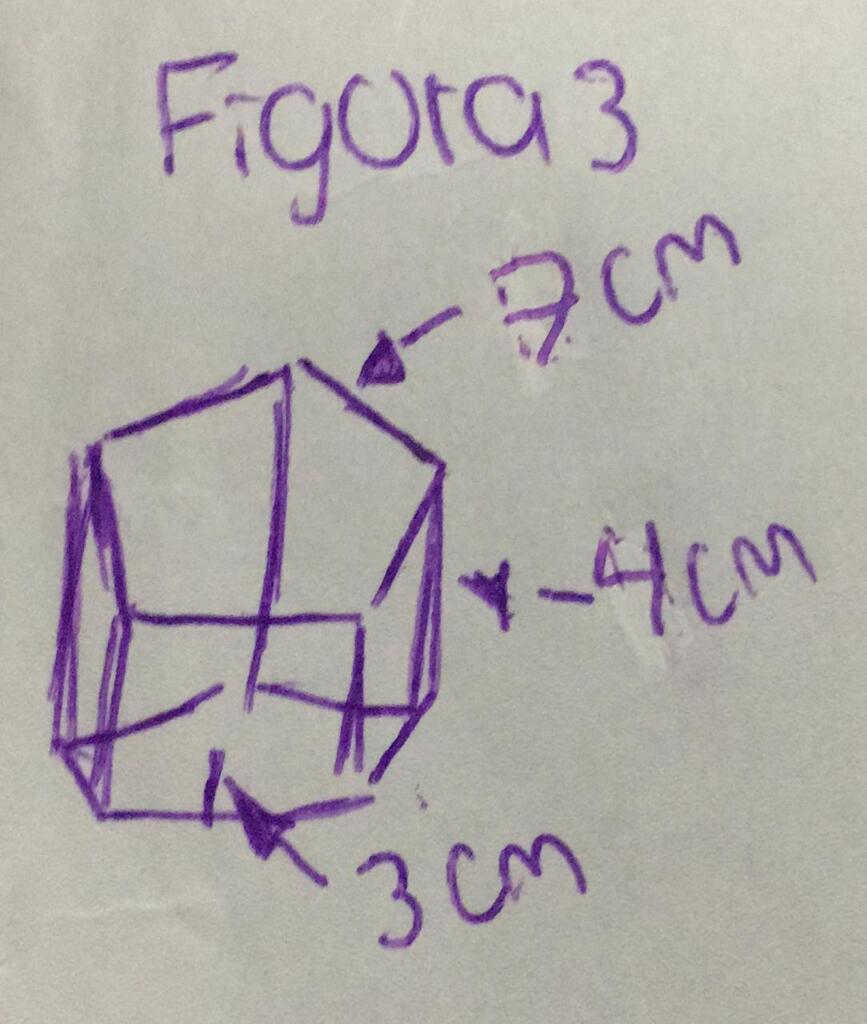 Figura 3
7 cm
4 cm
3 cm